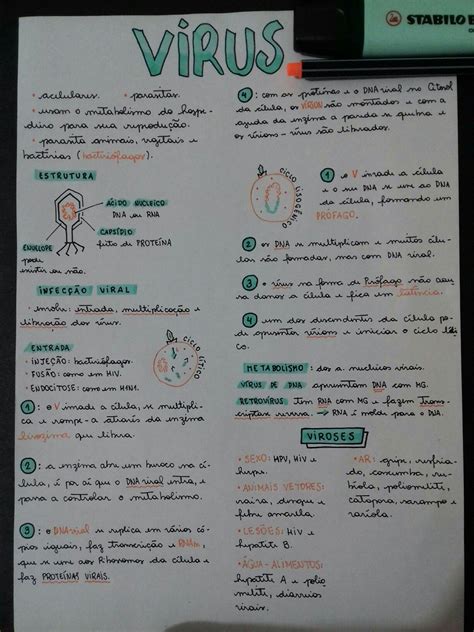 STABILO B
VÍRUS
• acelulares. • parasitas.
• usam o metabolismo do hospe-
deiro para sua reprodução.
• parasita animais, vegetais e
bactérias (bacteriófagos).
ESTRUTURA
ÁCIDO NUCLEICO
DNA ou RNA
CAPSÍDIO
feito de PROTEÍNA
ENVELOPE
pode
existir ou não.
INFECÇÃO VIRAL
• envolve: entrada, multiplicação e
liberação dos vírus.
ENTRADA
• INJEÇÃO: bacteriófagos.
• FUSÃO: como em HIV.
• ENDOCITOSE: como em H1N1.
CICLO LÍTICO
1: o V invade a célula, se multiplica
e rompe-a através da enzima
que libera.
2: a enzima abre um buraco na cé-
lula, é por aí que o DNA viral entra, e
para a controlar o metabolismo.
3: o DNA viral se replica em vários có-
pias iguais, faz transcrição e RNAm,
que se une aos Ribossomos da célula e
faz PROTEÍNAS VIRAIS.
4: com as proteínas e o DNA viral no
da célula, os são montados e com a
ajuda da enzima a parede se quebra e
os vírions - vírus são liberados.
CICLO LISOGÊNICO
1 o V invade a célula
e o seu DNA se une ao DNA
da célula, formando um
PRÓFAGO.
2 os DNA se multiplicam e muitas célu-
las são formadas, mas com DNA viral.
3 o vírus na forma de Prófago não
danos a célula e fica em latência.
4 um dos descendentes da célula po-
de apresentar vírions e iniciar o ciclo líti-
co.
METABOLISMO: dos a. nucleicos virais.
VÍRUS DE DNA apresentam DNA com MG.
RETROVÍRUS têm RNA com MG e fazem Trans-
criptase reversa → RNA é molde para o DNA.
VIROSES
• SEXO: HPV, HIV e
herpes.
• ANIMAIS VETORES:
raiva, dengue e
febre amarela.
• LESÕES: HIV e
hepatite B.
• ÁGUA - ALIMENTOS:
hepatite A e polio
melite, diarreias
virais.
• AR: gripe, resfria-
do, caxumba, ru-
béola, poliomielite,
catapora, sarampo e
varíola.